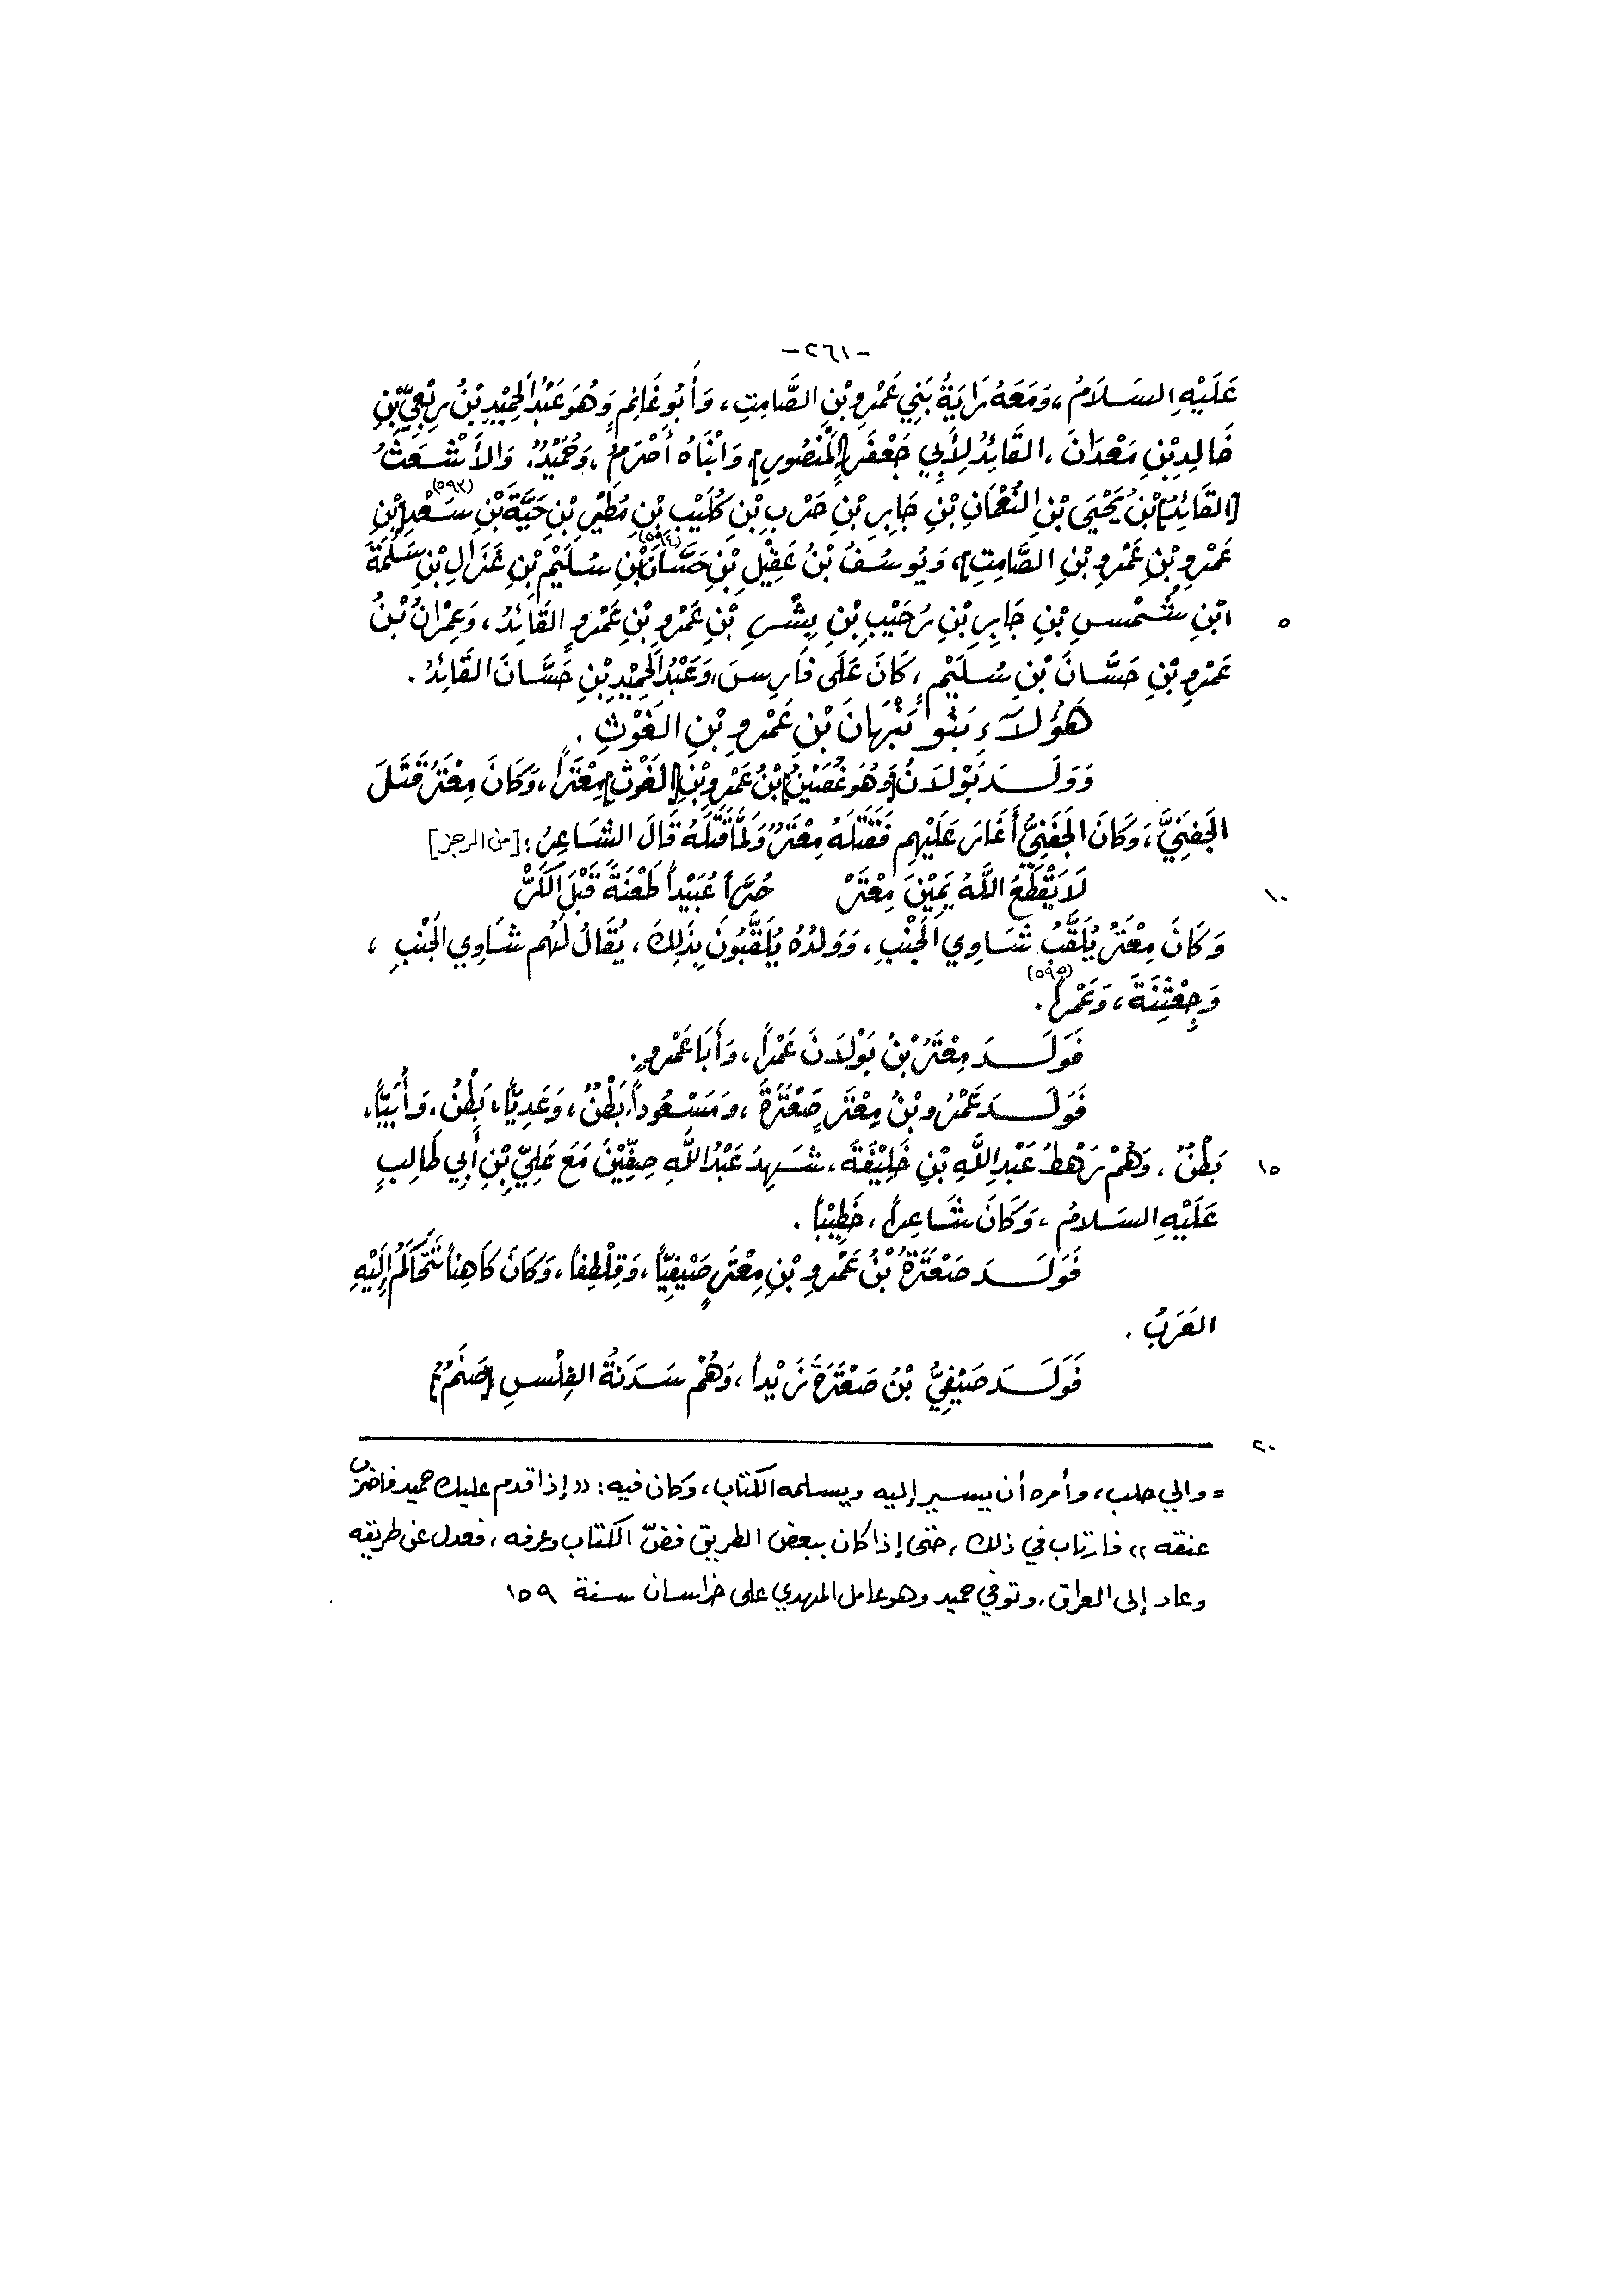 -٢٦١-
عَلَيْهِ السَّلَامُ، وَمَعَهُ رَايَةُ بَنِي عَمْرِو بْنِ الصَّامِتِ، وَأَبُو غَانِمٍ وَهُوَ عَبْدُ الحَمِيْدِ بْنُ رِبْعِيِّ بْنِ
خَالِدِ بْنِ مَعْدَانَ، القَائِدُ لِأَبِي جَعْفَرٍ [المَنْصُورِ]، وَابْنَاهُ أَصْرَمُ، وَحُمَيْدٌ. وَالأَشْعَثُ
[القَائِدُ] بْنُ يَحْيَى بْنِ النُّعْمَانِ بْنِ جَابِرِ بْنِ حَرْبِ بْنِ كُلَيْبِ بْنِ مُطَيْرِ بْنِ حَيَّةَ بْنِ سَعْدِ (٥٩٣) [بْنِ
عَمْرِو بْنِ عَمْرِو بْنِ الصَّامِتِ]، وَيُوسُفُ بْنُ عَقِيْلِ بْنِ حَسَّانَ (٥٩٤) بْنِ سُلَيْمِ بْنِ غَزَالِ بْنِ سَلَمَةَ
٥ ابْنِ شَمْسِ بْنِ جَابِرِ بْنِ رُحَيْبِ بْنِ بِشْرِ بْنِ عَمْرِو بْنِ عَمْرٍو القَائِدُ، وَعِمْرَانُ بْنُ
عَمْرِو بْنِ حَسَّانَ بْنِ سُلَيْمٍ، كَانَ عَلَى فَارِسَ، وَعَبْدُ الحَمِيْدِ بْنِ حَسَّانَ القَائِدُ.
هَؤُلَاءِ بَنُو نَبْهَانَ بْنِ عَمْرِو بْنِ الغَوْثِ.
وَوَلَدَ بَوْلَانُ [وَهُوَ غُصَيْنُ] بْنُ عَمْرِو بْنِ [الغَوْثِ] مِعْتَراً، وَكَانَ مِعْتَرٌ قَتَلَ
الجَفْنِيَّ، وَكَانَ الجَفْنِيُّ أَغَارَ عَلَيْهِم فَقَتَلَهُ مِعْتَرٌ وَلَمَّا قَتَلَهُ قَالَ الشَّاعِرُ: [من الرجز]
١٠ لَا يَقْطَعُ اللَّهُ يَمِيْنَ مِعْتَرْ حُرَّاً عُبَيْداً طَعْنَةً قَبْلَ الكَرّْ
وَكَانَ مِعْتَرُ يُلَقَّبُ شَاوِي الجَنْبِ، وَوَلدُهُ يُلَقَّبُونَ بِذَلِكَ، يُقَالُ لَهُم شَاوِي الجَنْبِ،
وَجِعْثِنَةَ، وَعَمْراً (٥٩٥).
فَوَلَدَ مِعْتَرُ بْنُ بَوْلَانَ عَمْراً، وَأَبَا عَمْرٍو.
فَوَلَدَ عَمْرُو بْنُ مِعْتَرٍ صَعْتَرَةَ، وَمَسْعُوداً، بَطْنٌ، وَعَدِيّاً، بَطْنٌ، وَأُبَيّاً،
١٥ بَطْنٌ، وَهُمْ رَهْطُ عَبْدِ اللَّهِ بْنِ خَلِيْفَةَ، شَهِدَ عَبْدُ اللَّهِ صِفِّيْنَ مَعَ عَلِيِّ بْنِ أَبِي طَالِبٍ
عَلَيْهِ السَّلَامُ، وَكَانَ شَاعِراً، خَطِيْباً.
فَوَلَدَ صَعْتَرَةُ بْنُ عَمْرِو بْنِ مِعْتَرٍ صَيْفِيّاً، وَقِلْطِفاً، وَكَانَ كَاهِناً تَتَحَاكَمُ إِلَيْهِ
العَرَبُ.
فَوَلَدَ صَيْفِيُّ بْنُ صَعْتَرَةَ زَيْداً، وَهُمْ سَدَنَةُ الفِلْسِ [صَنَمٌ]
٢٠
= والي حلب، وأمره أن يسير إليه ويسلمه الكتاب، وكان فيه: «إذا قدم عليك حميد فاضرب
عنقه» فارتاب في ذلك، حتى إذا كان ببعض الطريق فضّ الكتاب وعرفه، فعدل عن طريقه
وعاد إلى العراق، وتوفي حميد وهو عامل المهدي على خراسان سنة ١٥٩